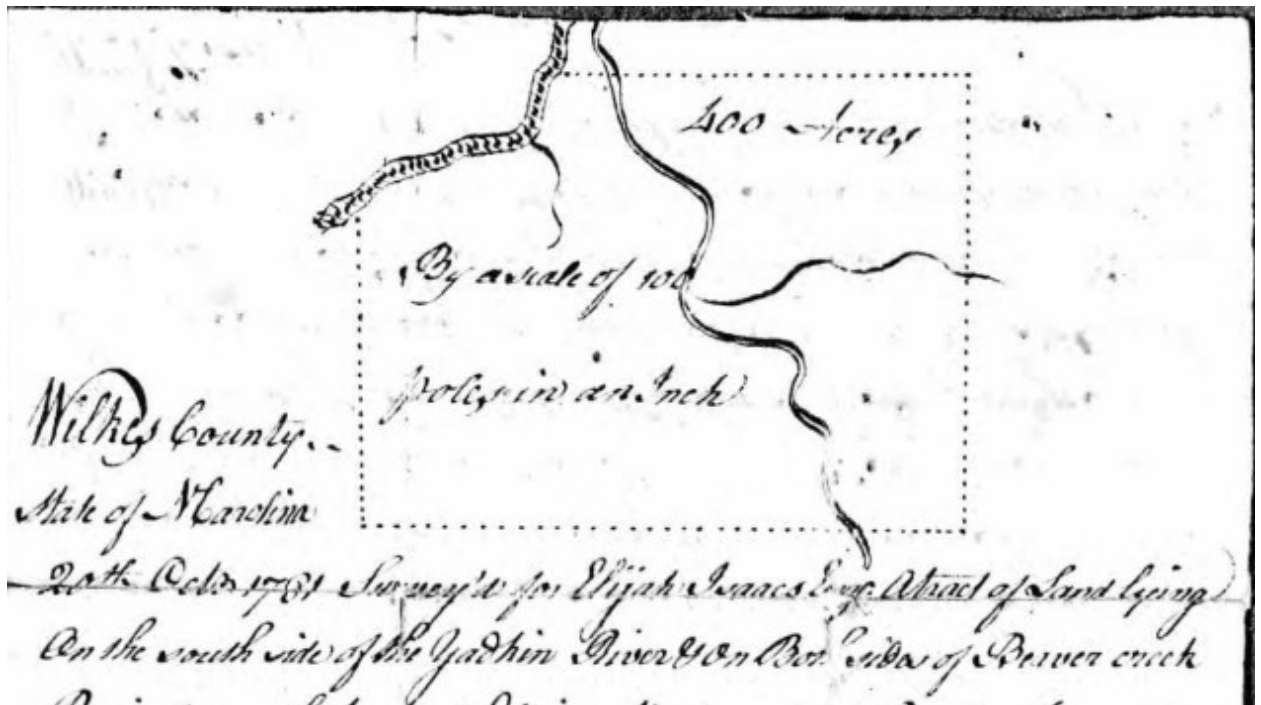 400 Acres
By a scale of 100
poles in an Inch
Wilkes County.
State of N Carolina
20th Octbr 1781 Survey'd for Elijah Isaacs Esqr. A tract of Land lying
On the south side of the Yadkin River & On Both sides of Bever creek